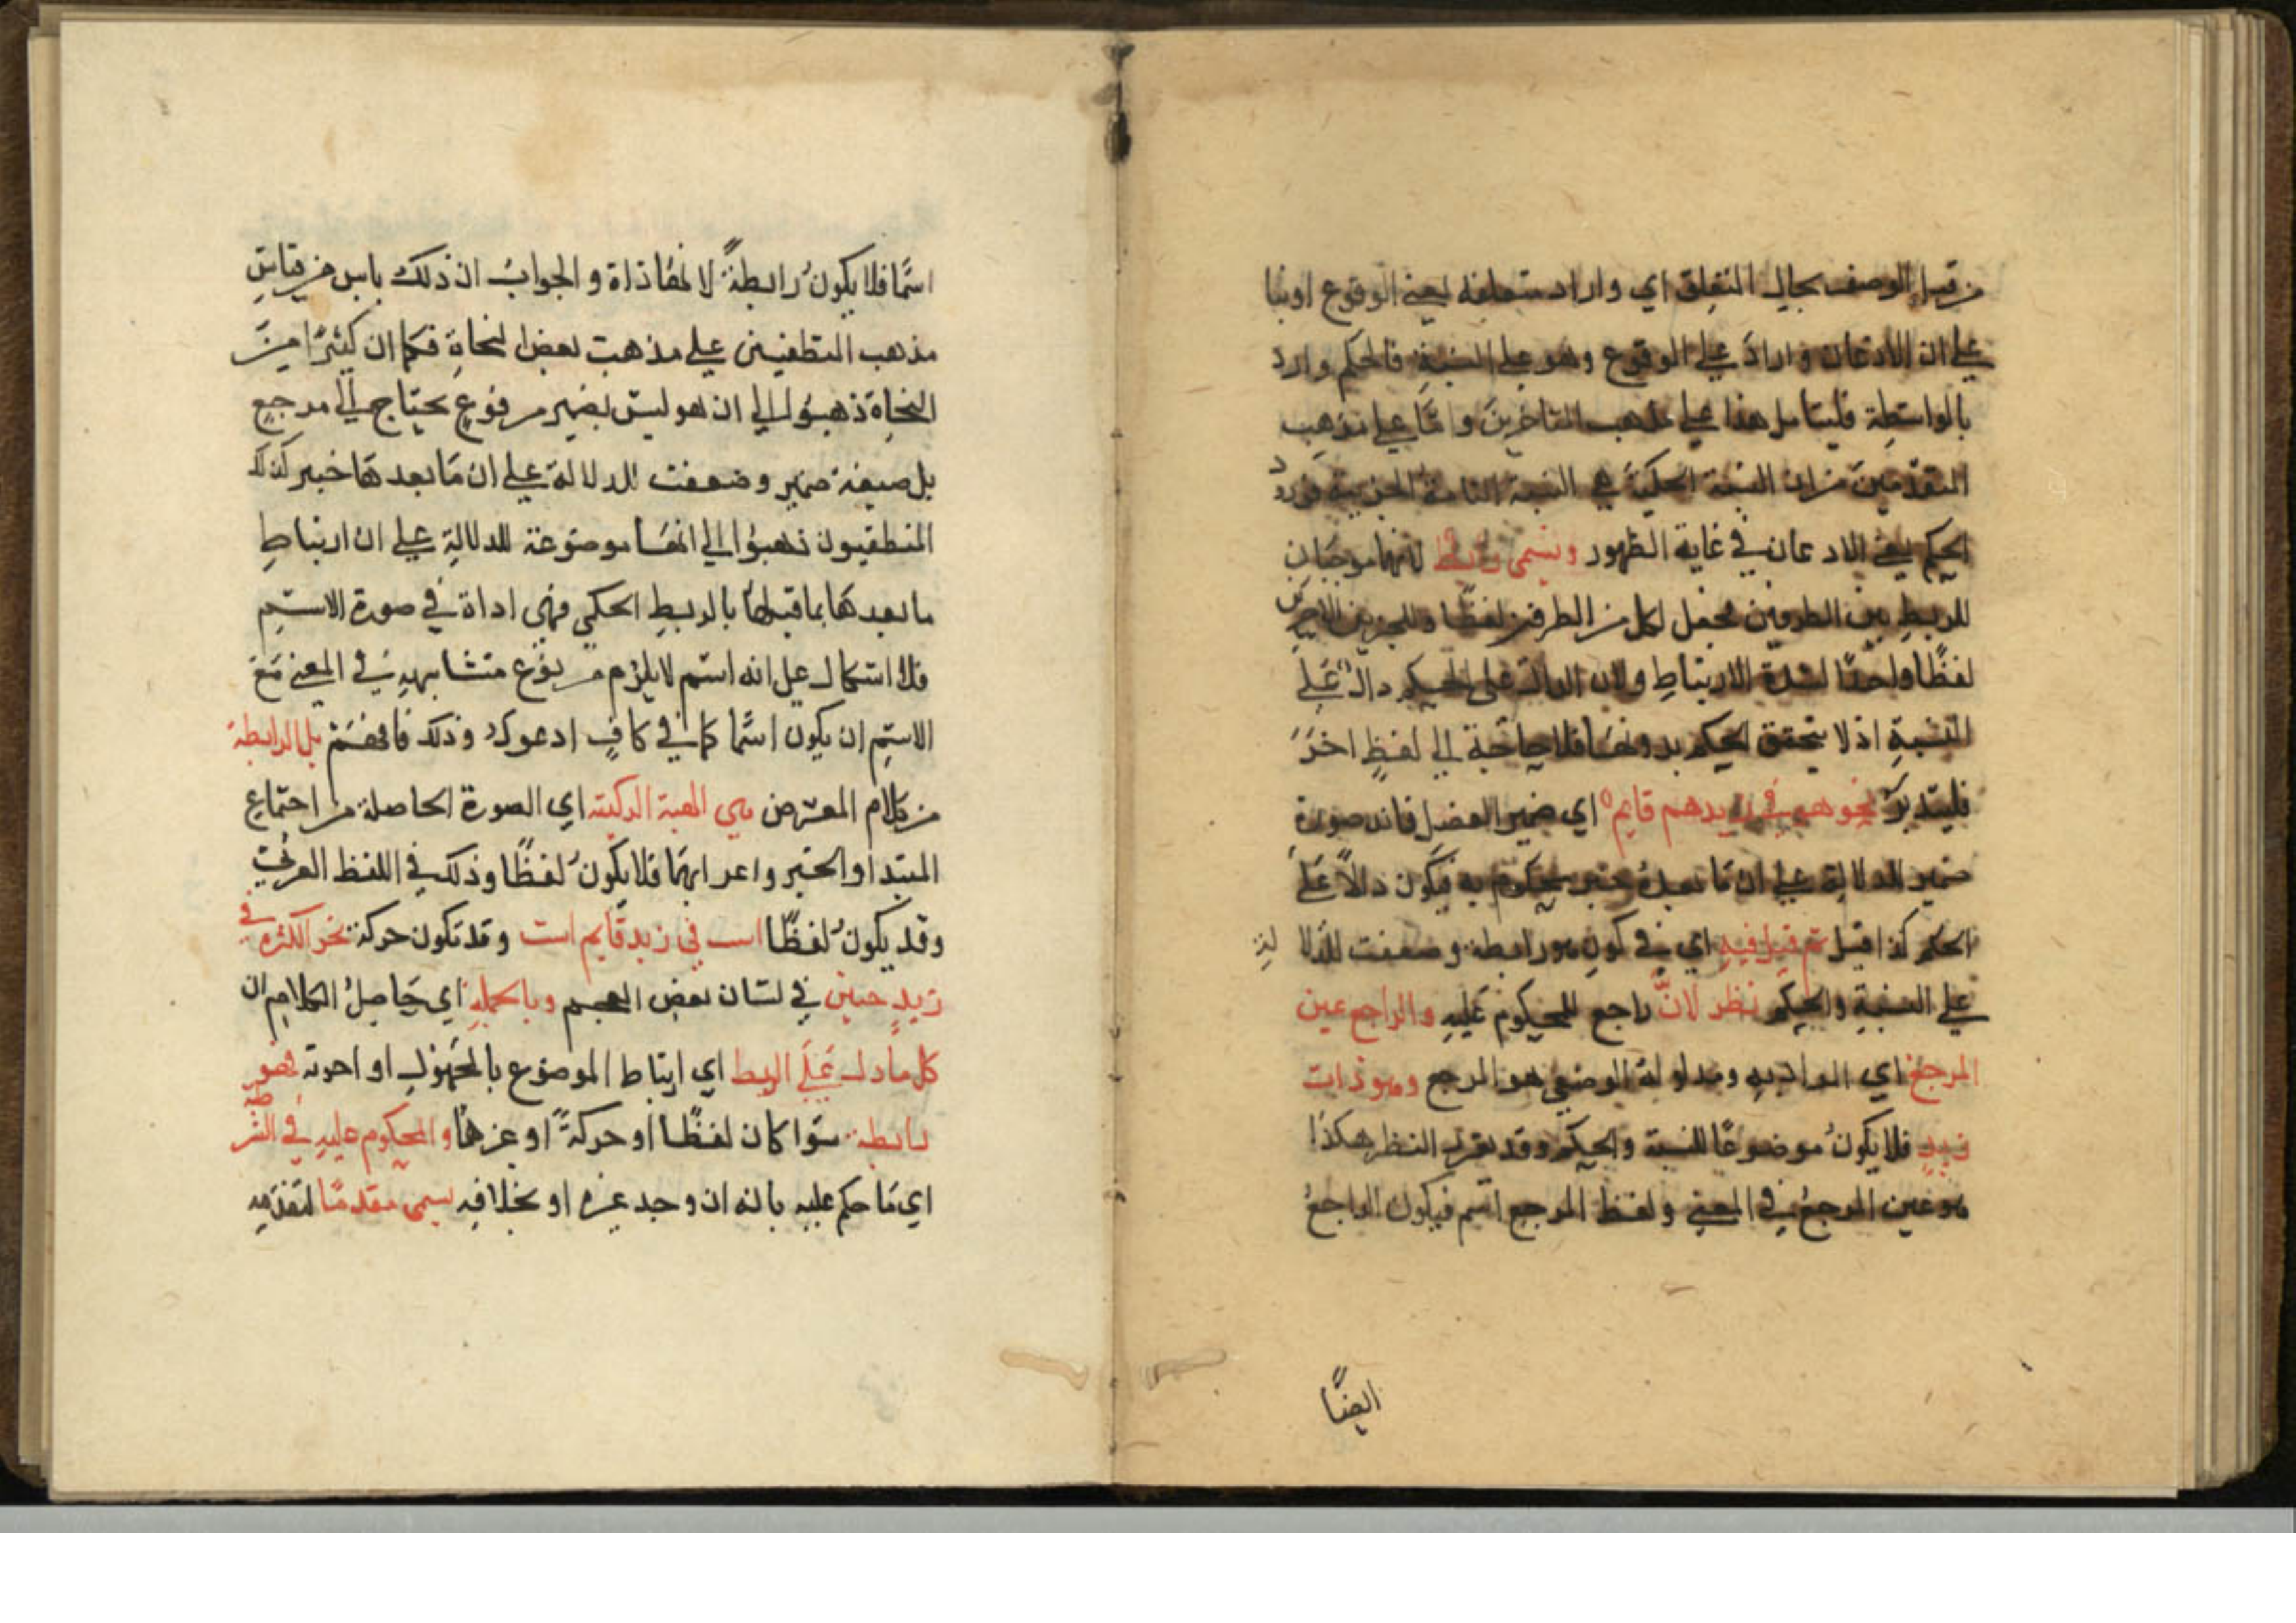 من قبيل الوصف بحال المتعلق اي وارد متعلقه يعني الوقوع او بنا
علي ان الاذعان واراد علي الوقوع وهو علي النسبة فالحكم وارد
بالواسطة فليتامل هذا علي مذهب المتاخرين واما علي مذهب
المتقدمين من ان النسبة الحكمية هي النسبة التامة الخبرية فورود
الحكم يعني الاذعان في غاية الظهور وتسمى رابطة لانهما موجبان
للربط بين الطرفين فجعل لكل من الطرفين لفظا وللجزيين الاخرين
لفظًا واحدًا لشدة الارتباط ولان الدال على الحكم دال علي
النسبة اذ لا يتحقق الحكم بدونها فلا حاجة الي لفظ اخر
فليتدبر نحو هو في زيد هو قايم اي ضمير الفصل فانه صورة
ضمير للدلالة علي ان ما بعده خبر محكوم به فيكون دالًا علي
الحكم كذا قيل ثم قيل فيه اي في كون هو رابطة وضعت للدلالة
علي النسبة والحكم نظر لانّ راجع للمحكوم عليه والراجع عين
المرجع اي المراد به ومدلوله الوضعي هو المرجع وهو ذات
زيد فلا يكون موضوعًا للنسبة والحكم وقد يقرر النظر هكذا
هو عين المرجع في المعني ولفظ المرجع اسم فيكون الراجع
ايضًا
اسمًا فلا يكون رابطةً لانها اداة و الجواب ان ذلك باس من قياس
مذهب المنطقيين علي مذهب بعض النحاة فكما ان كثيرًا من
النحاة ذهبوا الي ان هو ليس بضمير مرفوع يحتاج الي مرجع
بل صيغة ضمير وضعت للدلالة علي ان ما بعدها خبر كذلك
المنطقيون ذهبوا الي انها موضوعة للدلالة علي ان ارتباط
ما بعدها بما قبلها بالربط الحكمي فهي اداة في صورة الاسم
فلا اشكال علي انه اسم لا يلزم من نوع متشابهه في المعني مع
الاسم ان يكون اسمًا كما في كاف ادعوك وذلك فافهم بل الرابطة
من كلام المعترض هي الهيئة التركيبية اي الصورة الحاصلة من اجتماع
المبتدا والخبر واعرابهما فلا يكون لفظًا وذلك في اللفظ العربي
وقد يكون لفظًا است في زيد قايم است وقد تكون حركة نحو الكثرة في
زيد حبين في لسان بعض العجم وبالجملة اي حاصل الكلام ان
كل ما دل علي الربط اي ارتباط الموضوع بالمحمول او اخوته فهو
رابطة سوا كان لفظًا او حركةً او غيرها والمحكوم عليه في الشرطية
اي ما حكم عليه بانه ان وجد غيره او بخلافه يسمى مقدمًا لتقدمه